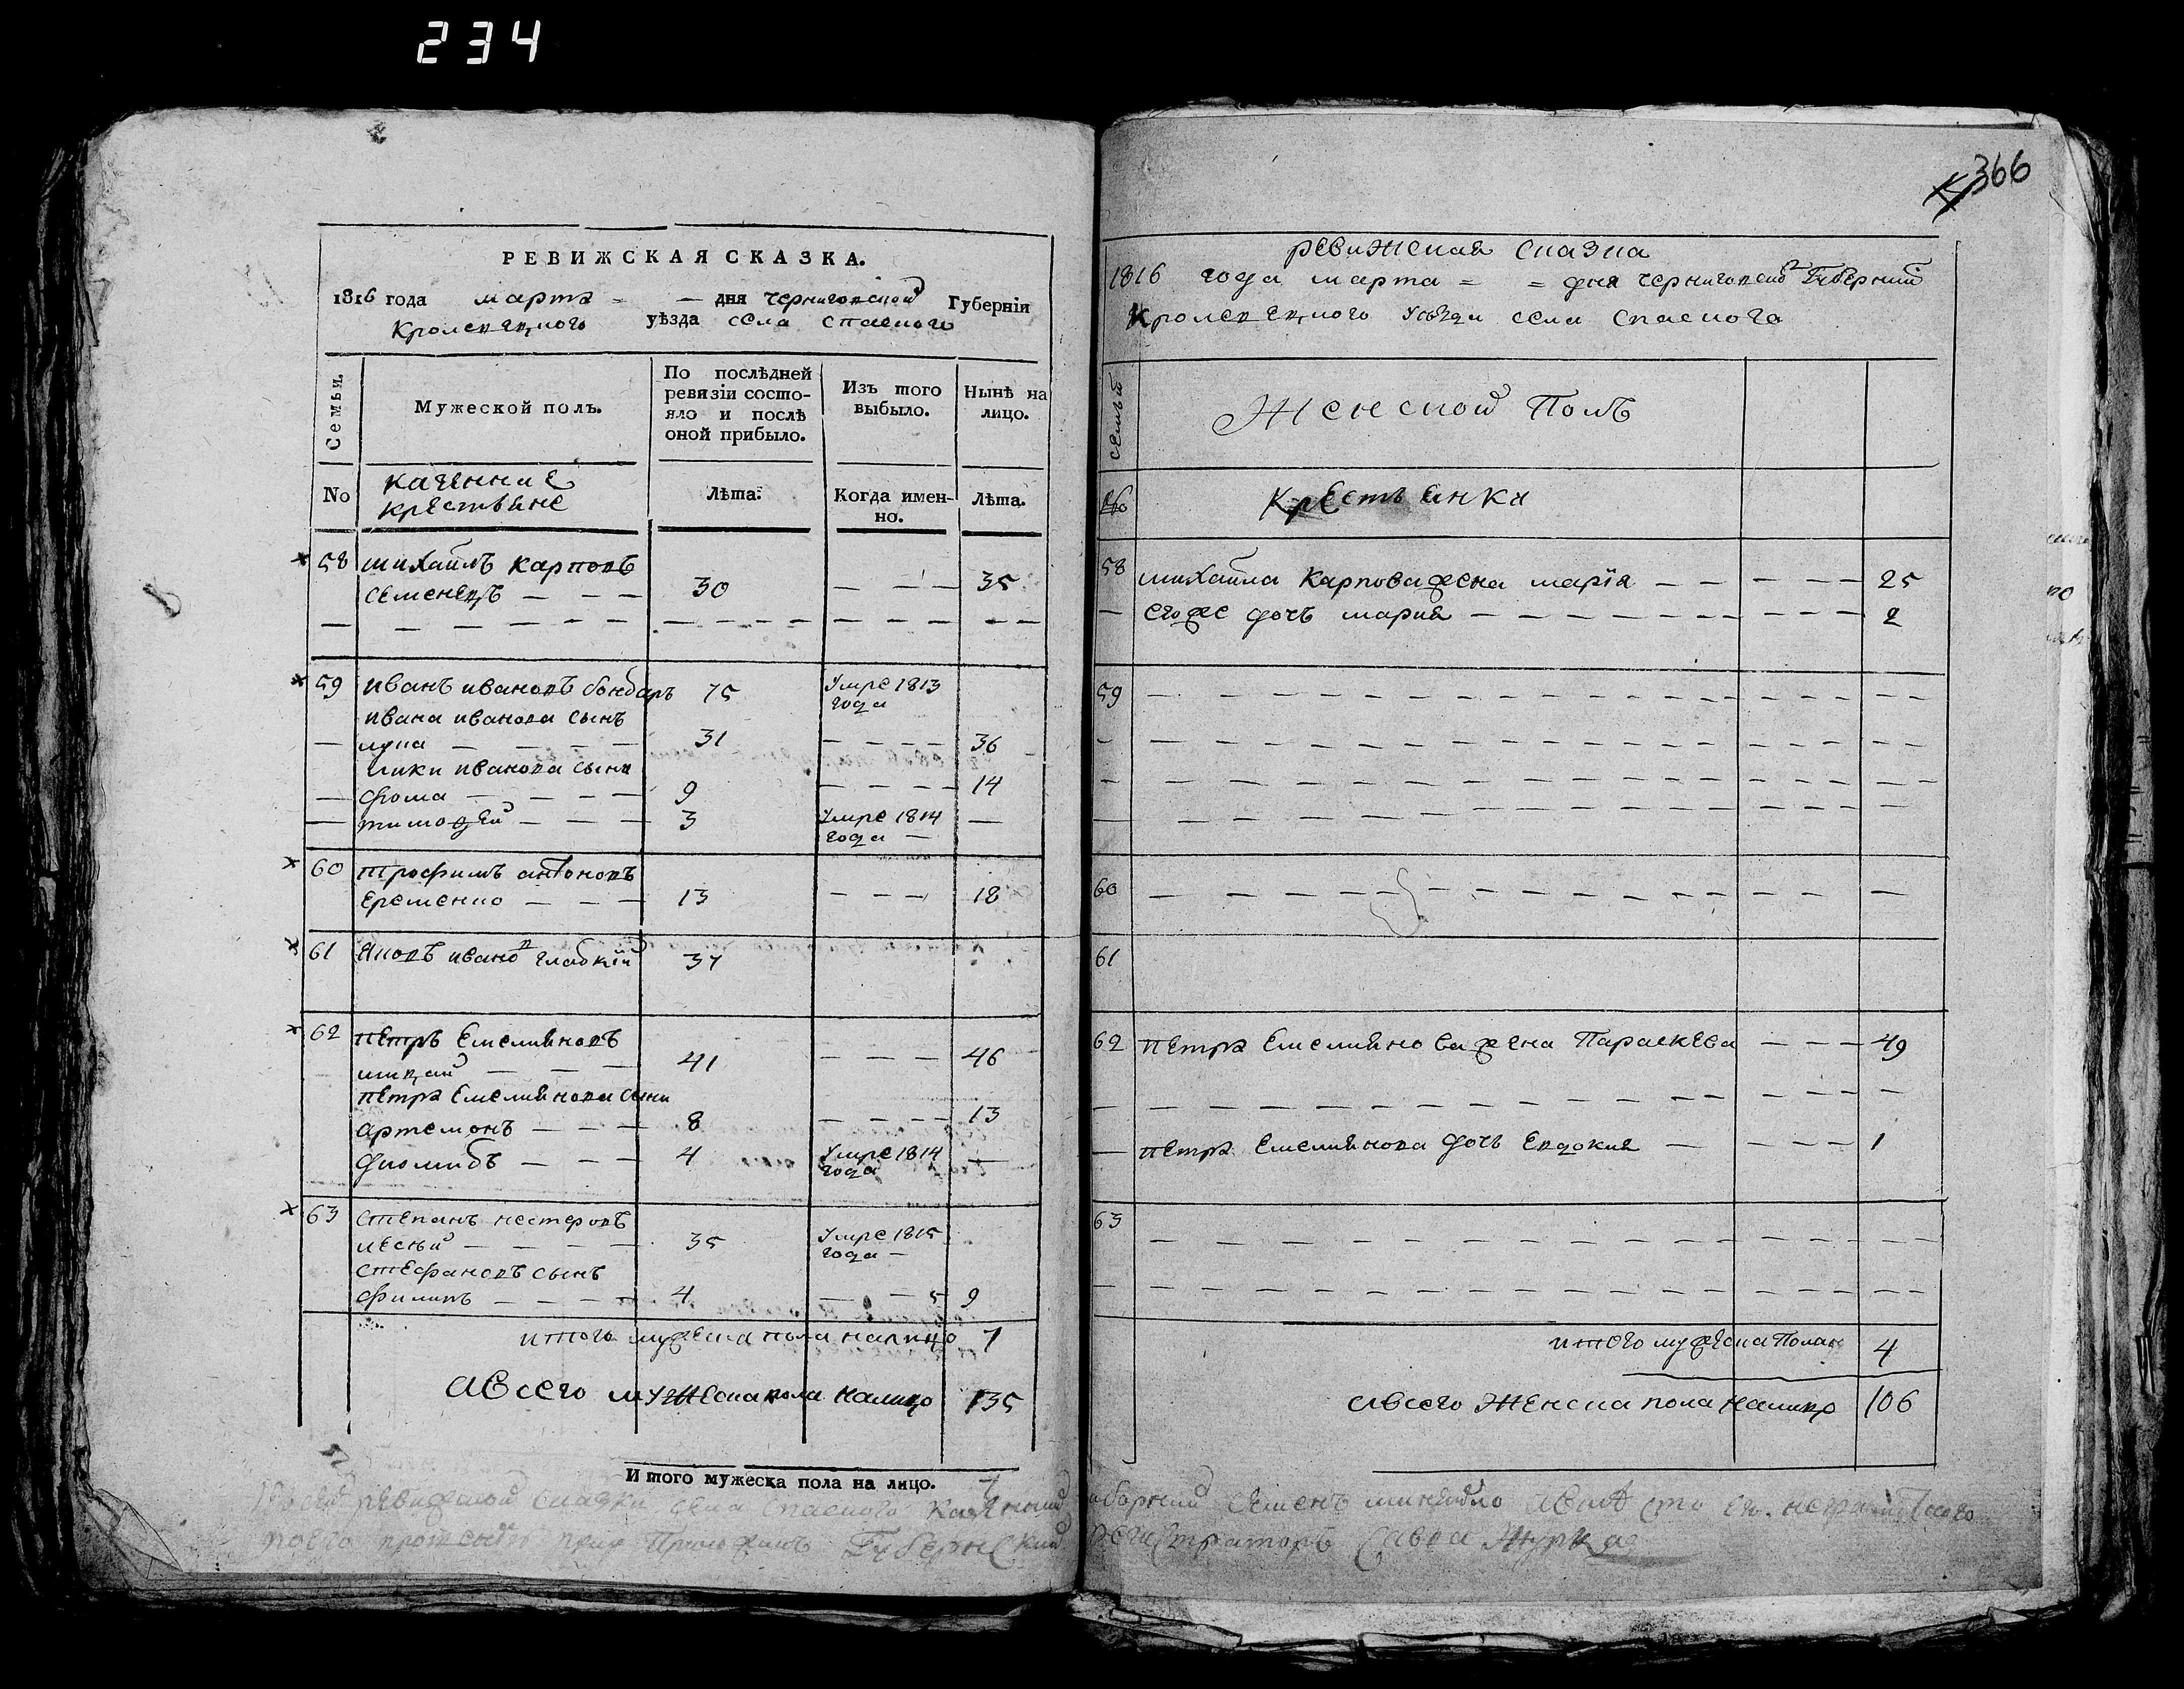 234
РЕВИЖСКАЯ СКАЗКА.
1816 года марта = — дня черниговской Губерніи
Кролевецкого уѣзда села Спаского
Семьи.
Мужеской полъ.
По послѣдней ревизіи состояло и послѣ оной прибыло.
Изъ того выбыло.
Нынѣ на лицо.
No
казенние
крестьяне
Лѣта.
Когда именно.
Лѣта.
58 михайлъ карповъ
семенецъ — — — 30 — — — 35
59 иванъ ивановъ бондаръ 75 Умре 1813 года
ивана иванова сынъ
лука — — — — 31 — — — — 36
луки иванова сыни
фома — — — — 9 — — — — 14
тимофей — — — 3 Умре 1814 года — —
60 трофимъ антоновъ
Еременко — — — 13 — — — 18
61 Яковъ ивановъ гладкій 37
62 петръ Емелияновъ
— — — 41 — — — 46
петра Емелиянова сыни
артемонъ — — — 8 — — — — 13
— — — 4 Умре 1814 года —
63 степанъ нестеровъ
— — — — 35 Умре 1815 года —
стефановъ сынъ
филипъ — — — — 4 — — 9
итого мужеска пола налицо 7
а всего мужеска пола налицо 135
Итого мужеска пола на лицо. 7
366
ревижская сказка
1816 года марта = = дня черниговской Губерний
Кролевецкого Уѣзда села Спаского
семьи
Женской Полъ
No
Крестьянки
58 михайла Карпова жена марія — — — — — 25
— егоже дочъ мария — — — — — — — — 2
59
60
61
62 петра Емелиянова жена Параскева — — — 49
— петра Емелиянова дочъ Евдокия — — — — 1
63
итого мужеска пола 4
а всего Женска пола налицо 106
ревижской сказки села Спаского казенний
Губернский регистраторъ Савва